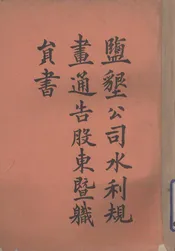 鹽墾公司水利規
畫通告股東暨職
員書